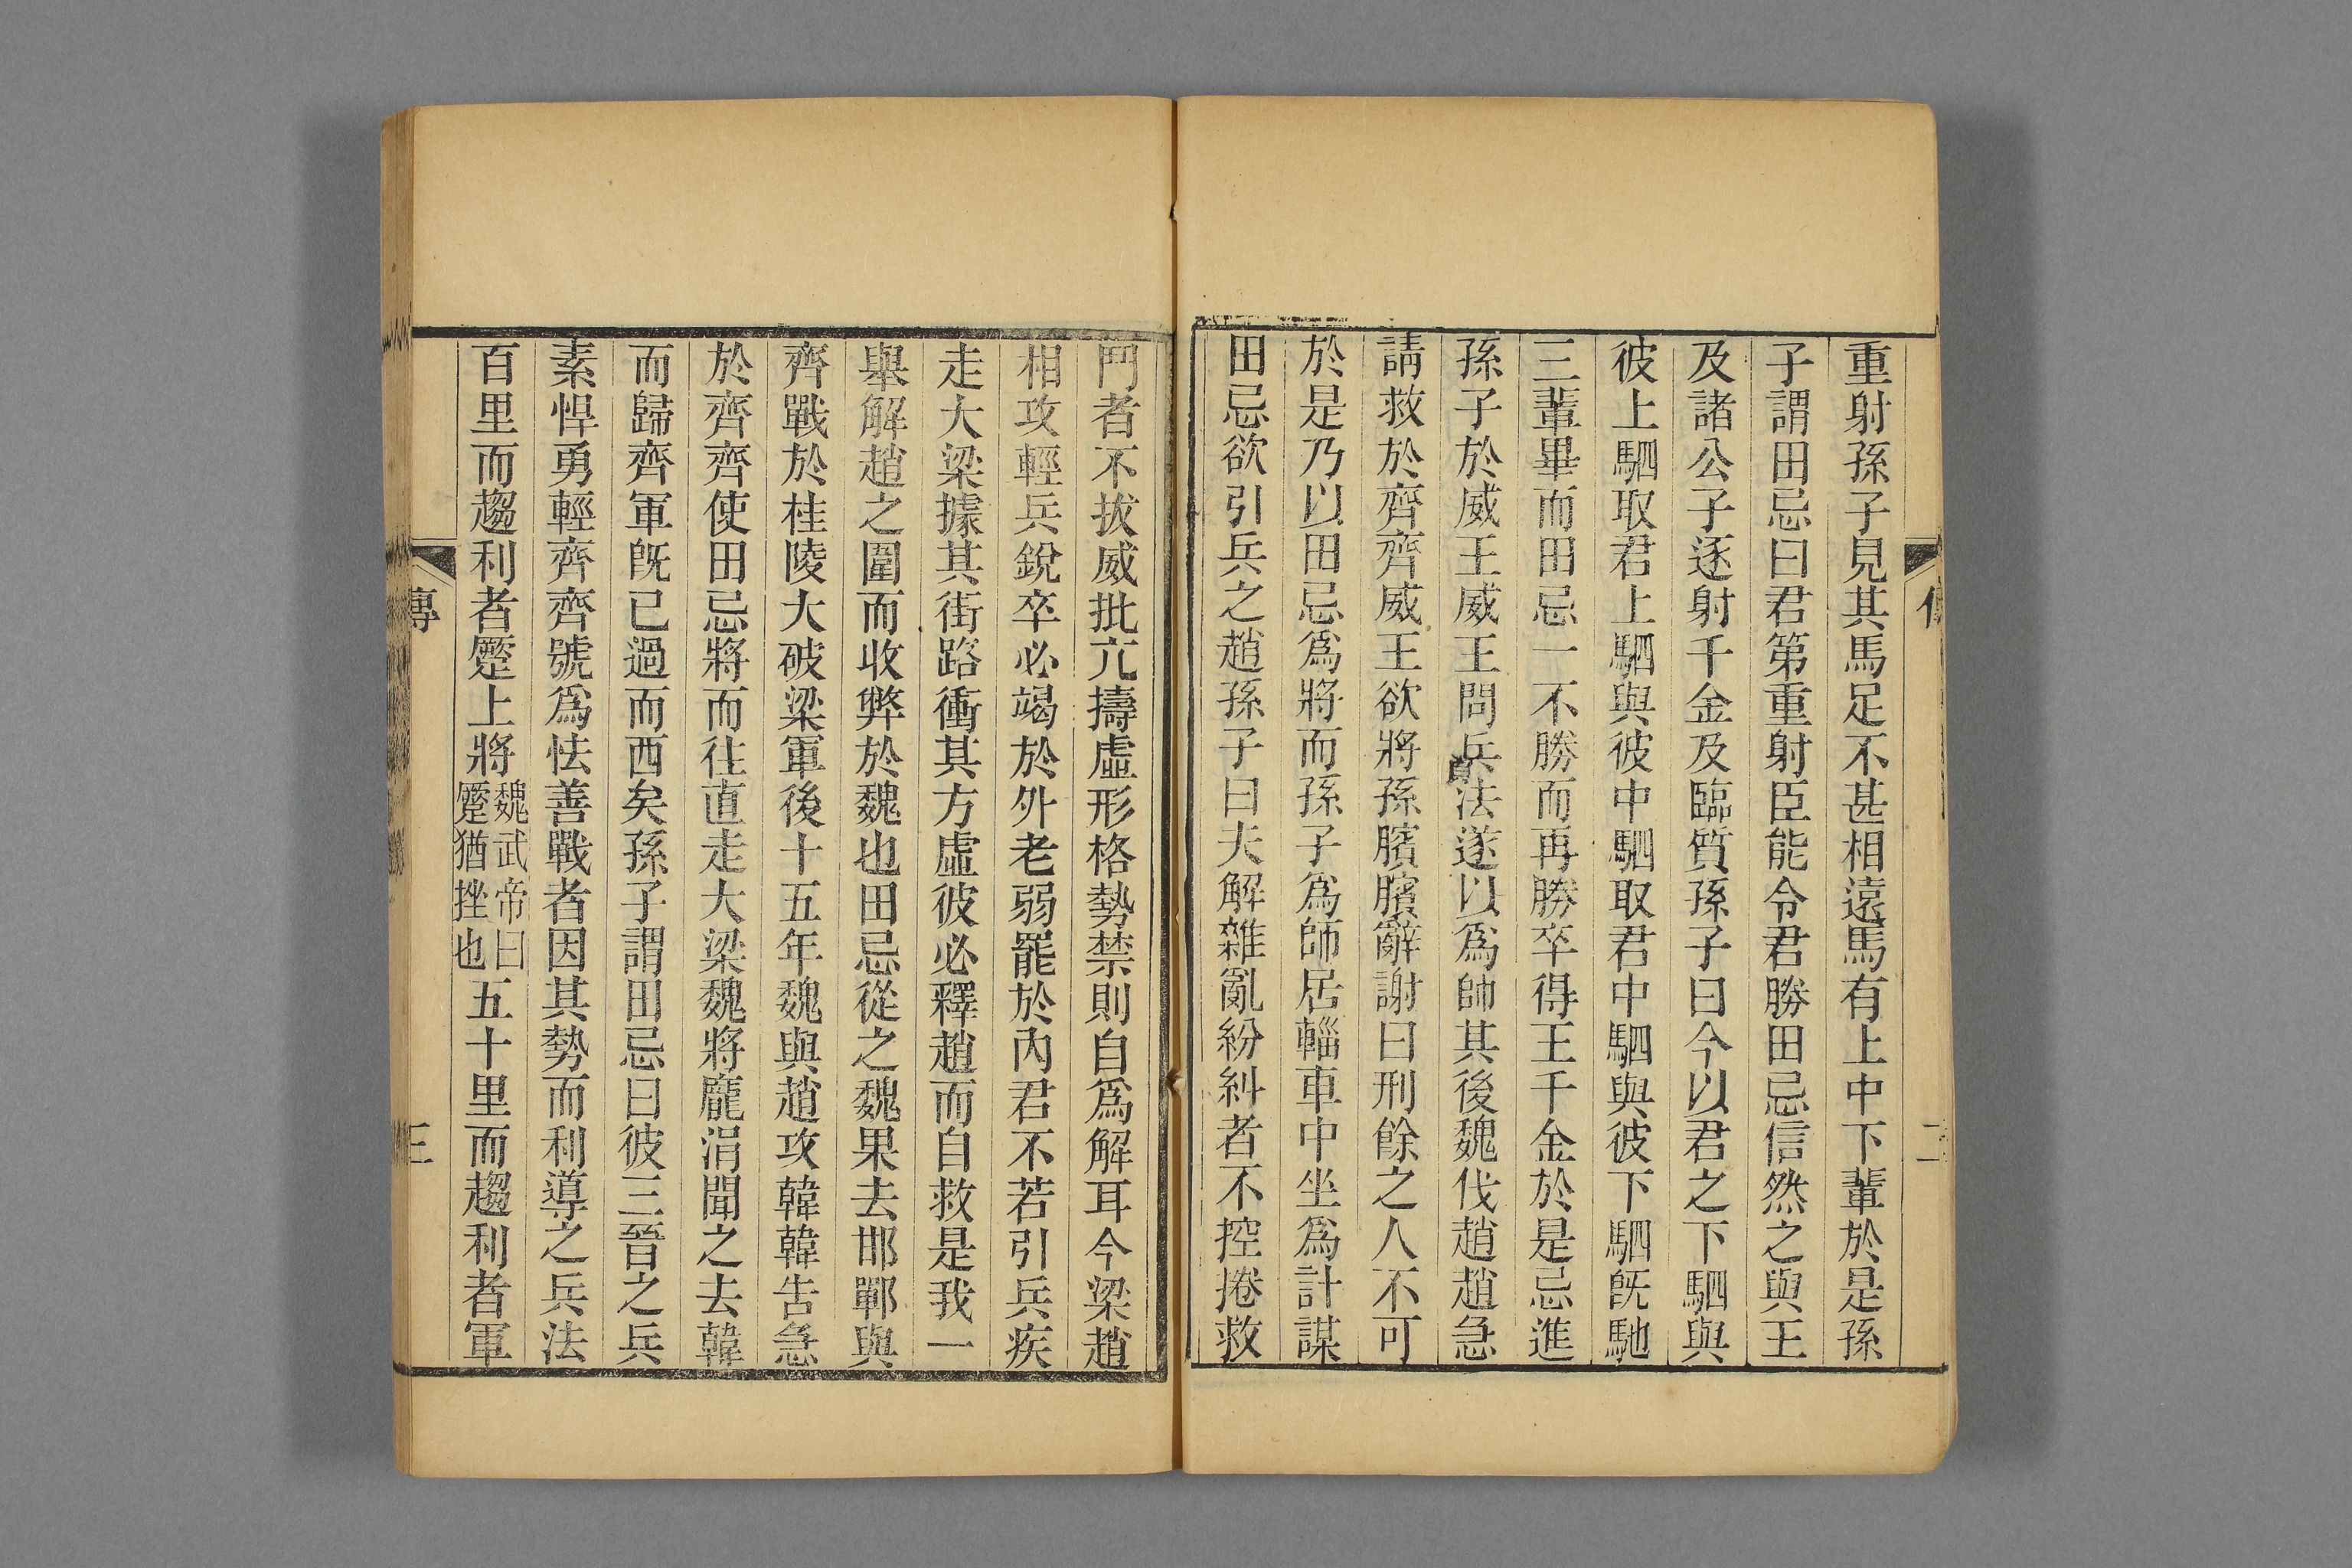 重射孫子見其馬足不甚相遠馬有上中下輩於是孫
子謂田忌曰君第重射臣能令君勝田忌信然之與王
及諸公子逐射千金及臨質孫子曰今以君之下駟與
彼上駟取君上駟與彼中駟取君中駟與彼下駟旣馳
三輩畢而田忌一不勝而再勝卒得王千金於是忌進
孫子於威王威王問兵法遂以爲師其後魏伐趙趙急
請救於齊齊威王欲將孫臏臏辭謝曰刑餘之人不可
於是乃以田忌爲將而孫子爲師居輜車中坐爲計謀
田忌欲引兵之趙孫子曰夫解雜亂紛糾者不控捲救
鬥者不拔威批亢擣虛形格勢禁則自爲解耳今梁趙
相攻輕兵銳卒必竭於外老弱罷於內君不若引兵疾
走大梁據其街路衝其方虛彼必釋趙而自救是我一
舉解趙之圍而收弊於魏也田忌從之魏果去邯鄲與
齊戰於桂陵大破梁軍後十五年魏與趙攻韓韓告急
於齊齊使田忌將而往直走大梁魏將龐涓聞之去韓
而歸齊軍旣已過而西矣孫子謂田忌曰彼三晉之兵
素悍勇輕齊齊號爲怯善戰者因其勢而利導之兵法
百里而趨利者蹷上將魏武帝曰蹷猶挫也五十里而趨利者軍
傳
三
二